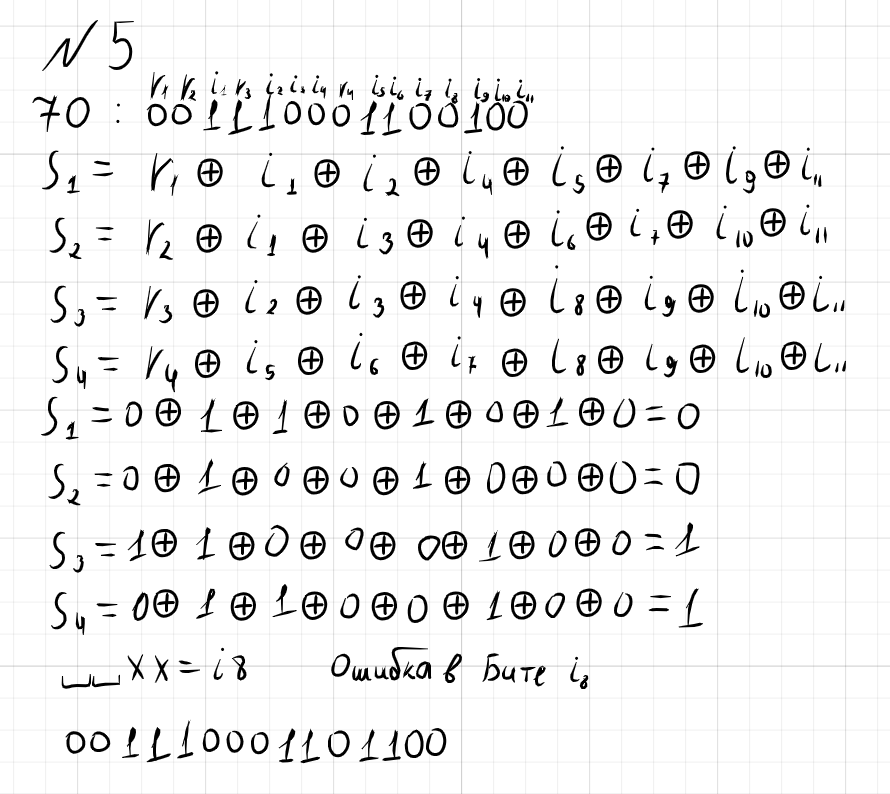 N 5
r₁ r₂ i₁ r₃ i₂ i₃ i₄ r₄ i₅ i₆ i₇ i₈ i₉ i₁₀ i₁₁
70 : 001110001100100
S₁ = r₁ ⊕ i₁ ⊕ i₂ ⊕ i₄ ⊕ i₅ ⊕ i₇ ⊕ i₉ ⊕ i₁₁
S₂ = r₂ ⊕ i₁ ⊕ i₃ ⊕ i₄ ⊕ i₆ ⊕ i₇ ⊕ i₁₀ ⊕ i₁₁
S₃ = r₃ ⊕ i₂ ⊕ i₃ ⊕ i₄ ⊕ i₈ ⊕ i₉ ⊕ i₁₀ ⊕ i₁₁
S₄ = r₄ ⊕ i₅ ⊕ i₆ ⊕ i₇ ⊕ i₈ ⊕ i₉ ⊕ i₁₀ ⊕ i₁₁
S₁ = 0 ⊕ 1 ⊕ 1 ⊕ 0 ⊕ 1 ⊕ 0 ⊕ 1 ⊕ 0 = 0
S₂ = 0 ⊕ 1 ⊕ 0 ⊕ 0 ⊕ 1 ⊕ 0 ⊕ 0 ⊕ 0 = 0
S₃ = 1 ⊕ 1 ⊕ 0 ⊕ 0 ⊕ 0 ⊕ 1 ⊕ 0 ⊕ 0 = 1
S₄ = 0 ⊕ 1 ⊕ 1 ⊕ 0 ⊕ 0 ⊕ 1 ⊕ 0 ⊕ 0 = 1
__XX = i8 Ошибка в Бите i₈
001110001101100